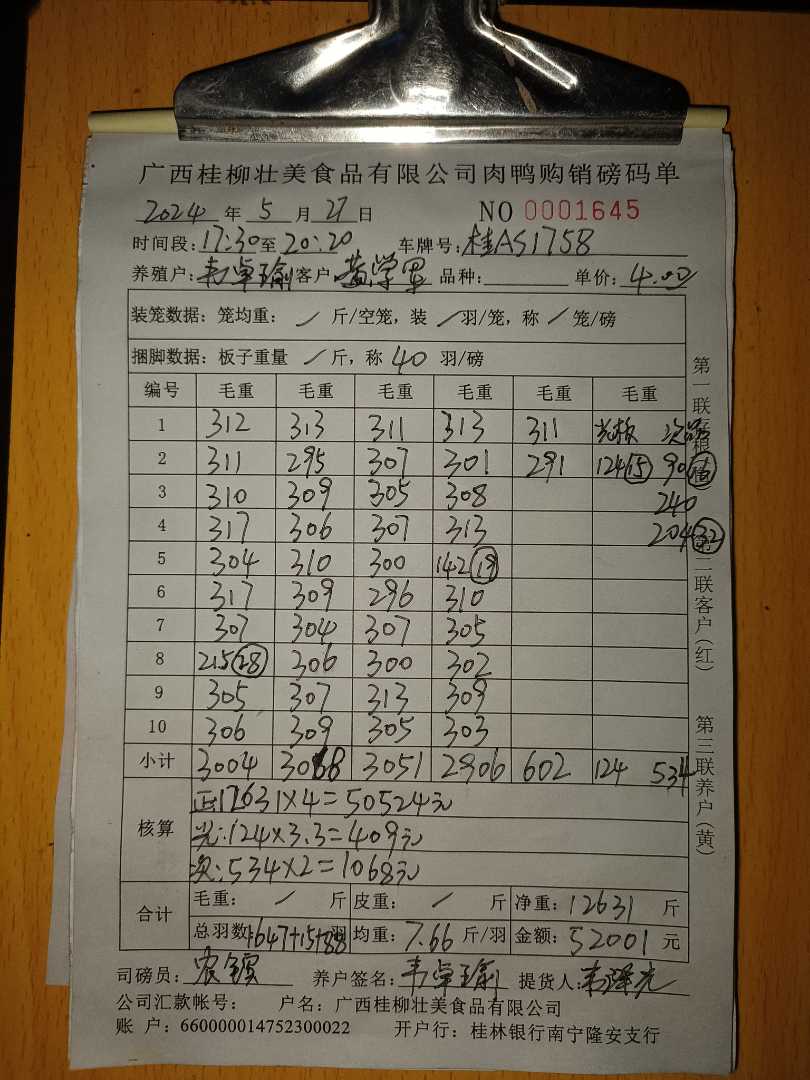 广西桂柳壮美食品有限公司肉鸭购销磅码单
2024 年 5 月 27 日 NO 0001645
时间段:17:30至20:20 车牌号:桂AS1758
养殖户:韦卓瑜 客户 黄学军 品种: 单价:4.00
装笼数据:笼均重: / 斤/空笼,装 / 羽/笼,称 / 笼/磅
捆脚数据:板子重量 / 斤,称 40 羽/磅
编号 毛重 毛重 毛重 毛重 毛重 毛重
1 312 313 311 313 311 光板 次品
2 311 295 307 301 291 124(15) 90(16)
3 310 309 305 308 240
4 317 306 307 313 204(32)
5 304 310 300 142(19)
6 317 309 296 310
7 307 304 307 305
8 215(28) 306 300 302
9 305 307 313 309
10 306 309 305 303
小计 3004 3068 3051 2906 602 124 534
核算
正12631×4=50524元
光:124×3.3=409元
次:534×2=1068元
合计
毛重: / 斤 皮重: / 斤 净重:12631 斤
总羽数1647+15+88羽 均重:7.66 斤/羽 金额:52001 元
司磅员: 养户签名:韦卓瑜 提货人:
公司汇款帐号: 户名:广西桂柳壮美食品有限公司
账 户:660000014752300022 开户行:桂林银行南宁隆安支行
第一联存根(白)
第二联客户(红)
第三联养户(黄)